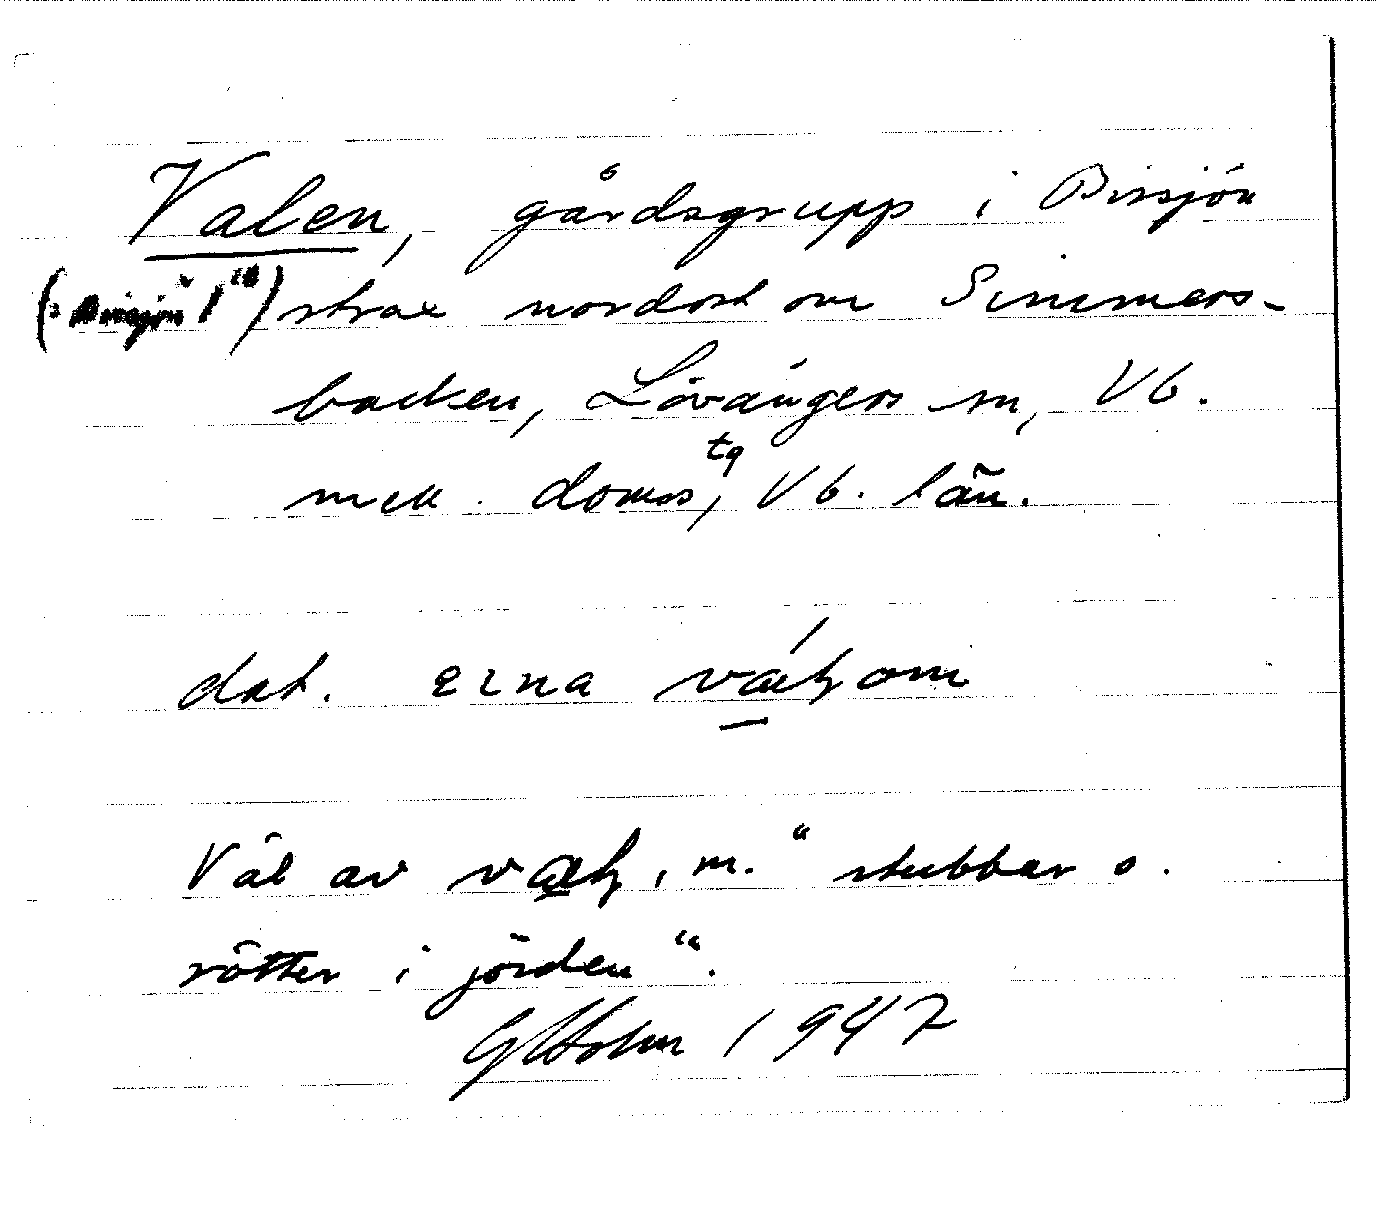 Valen, gårdsgrupp i Bissjön
(: Bissjön 1") strax nordost om Simmers-
backen, Lövångers sn, Vb.
mell. domstg, Vb. län.
dat. eina om
Väl av , m. "stubbar o.
rötter i jorden".
G Holm 1947